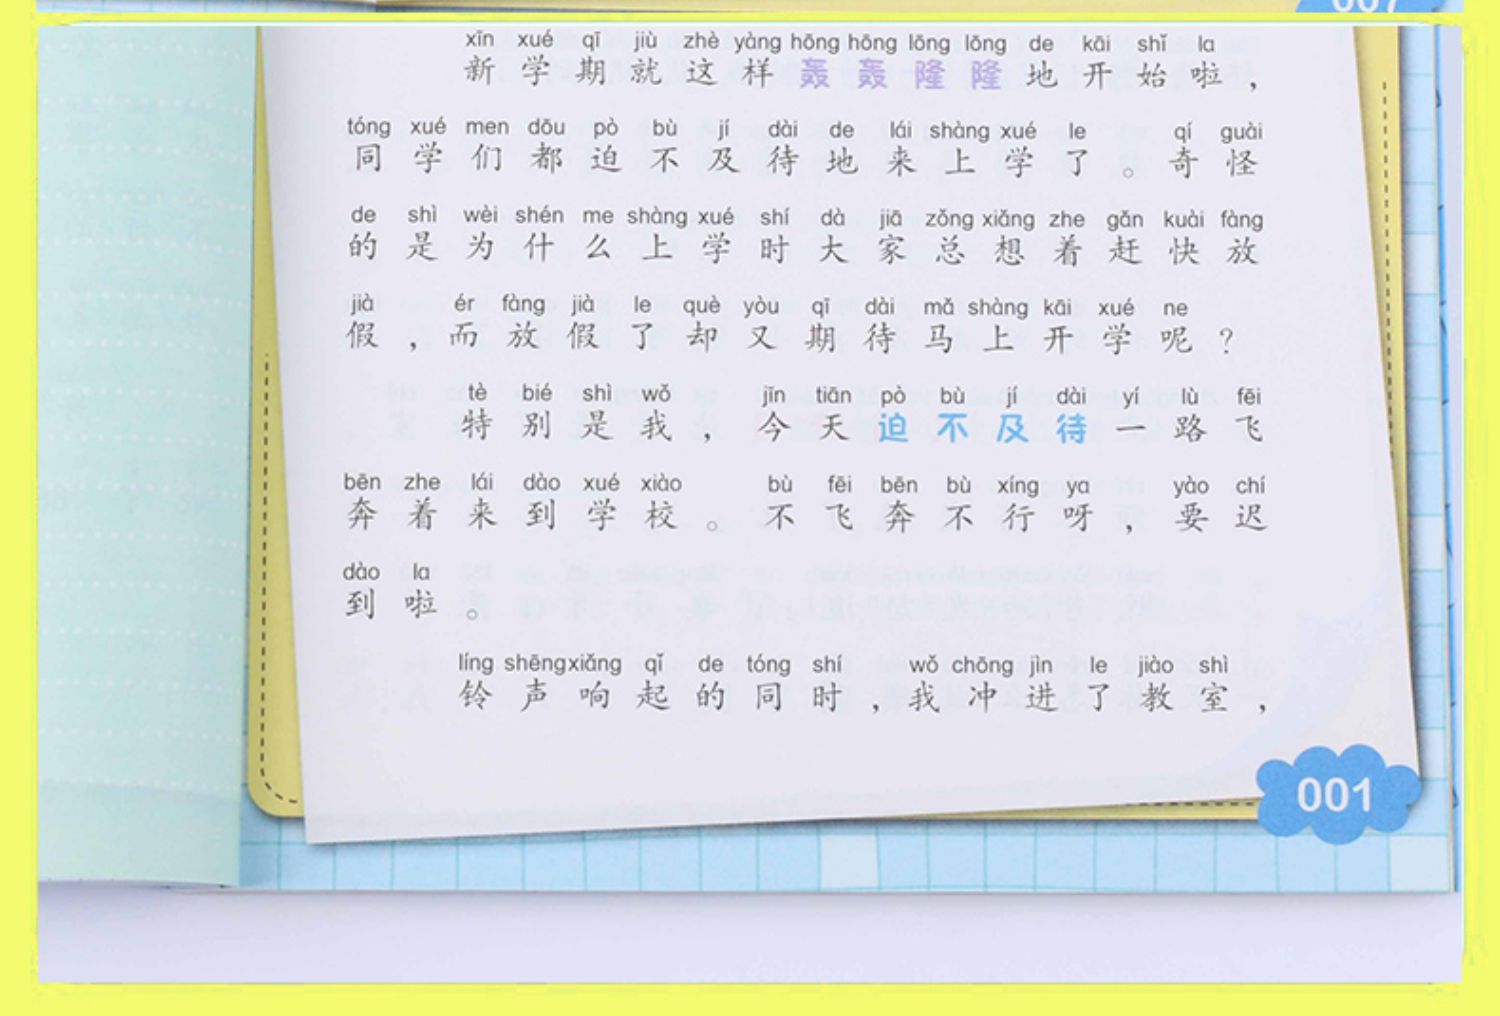 007
xīn xué qī jiù zhè yàng hōng hōng lōng lōng de kāi shǐ la
新学期就这样轰轰隆隆地开始啦，
tóng xué men dōu pò bù jí dài de lái shàng xué le qí guài
同学们都迫不及待地来上学了。奇怪
de shì wèi shén me shàng xué shí dà jiā zǒng xiǎng zhe gǎn kuài fàng
的是为什么上学时大家总想着赶快放
jià ér fàng jià le què yòu qī dài mǎ shàng kāi xué ne
假，而放假了却又期待马上开学呢？
tè bié shì wǒ jīn tiān pò bù jí dài yí lù fēi
特别是我，今天迫不及待一路飞
bēn zhe lái dào xué xiào bù fēi bēn bù xíng ya yào chí
奔着来到学校。不飞奔不行呀，要迟
dào la
到啦。
líng shēng xiǎng qǐ de tóng shí wǒ chōng jìn le jiào shì
铃声响起的同时，我冲进了教室，
001